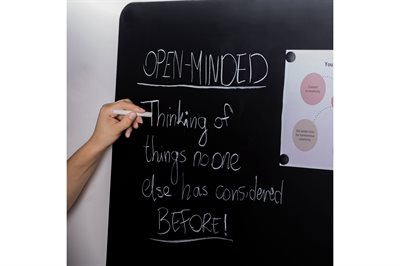 OPEN-MINDED
Thinking of
things no one
else has considered
BEFORE!
You